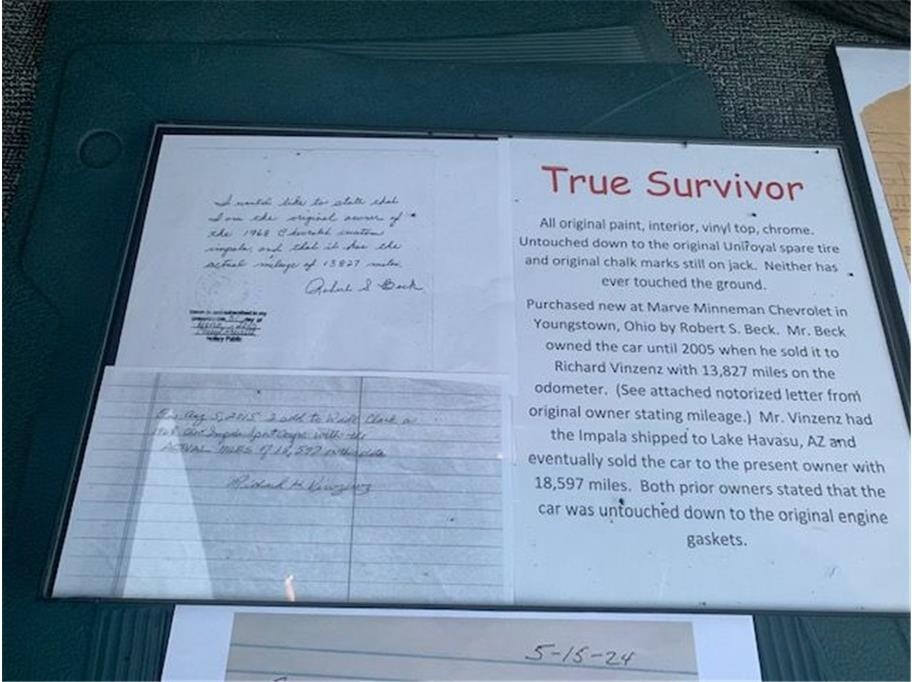 I would like to state that
I am the original owner of
the 1968 Chevrolet custom
impala and that it has the
actual mileage of 13827 miles.
Robert S Beck
Sworn to and subscribed in my
presence this day of
Notary Public
On Aug 5, 2015 I sold to Wade Clark a
1968 Impala Sport Coupe with the
ACTUAL MILES of 18,597 on this date
Richard H. Vinzenz
True Survivor
All original paint, interior, vinyl top, chrome.
Untouched down to the original Uniroyal spare tire
and original chalk marks still on jack. Neither has
ever touched the ground.
Purchased new at Marve Minneman Chevrolet in
Youngstown, Ohio by Robert S. Beck. Mr. Beck
owned the car until 2005 when he sold it to
Richard Vinzenz with 13,827 miles on the
odometer. (See attached notorized letter from
original owner stating mileage.) Mr. Vinzenz had
the Impala shipped to Lake Havasu, AZ and
eventually sold the car to the present owner with
18,597 miles. Both prior owners stated that the
car was untouched down to the original engine
gaskets.
5-15-24